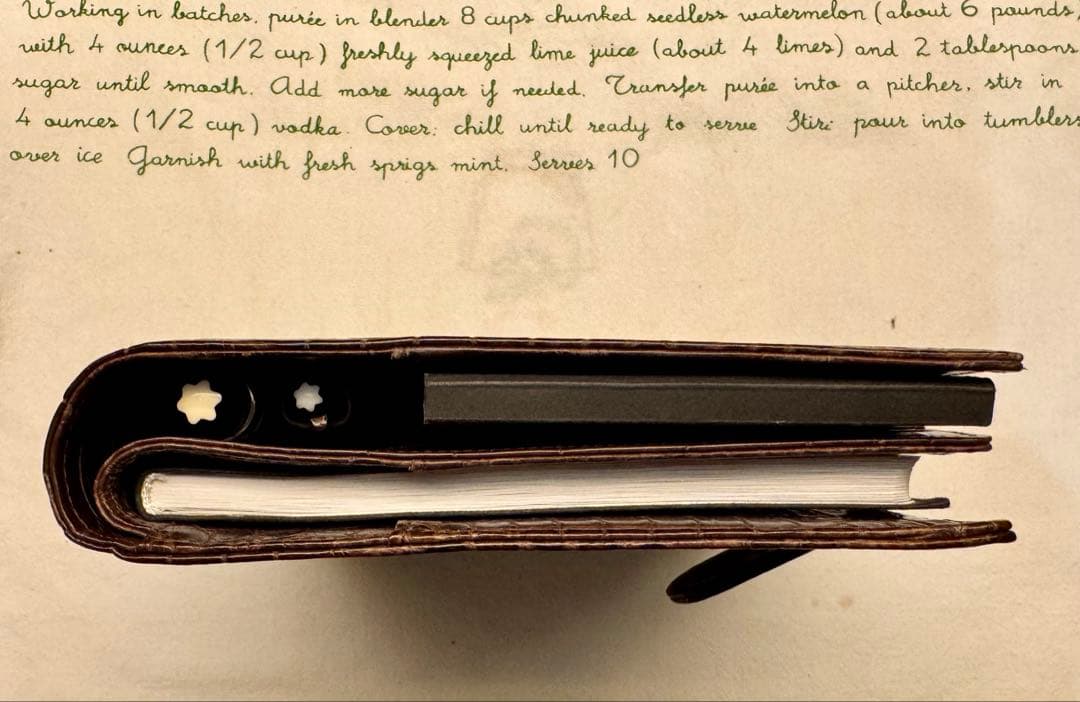 Working in batches, purée in blender 8 cups chunked seedless watermelon (about 6 pounds,
with 4 ounces (1/2 cup) freshly squeezed lime juice (about 4 limes) and 2 tablespoons
sugar until smooth. Add more sugar if needed. Transfer purée into a pitcher, stir in
4 ounces (1/2 cup) vodka. Cover; chill until ready to serve Stir; pour into tumblers
over ice Garnish with fresh sprigs mint. Serves 10